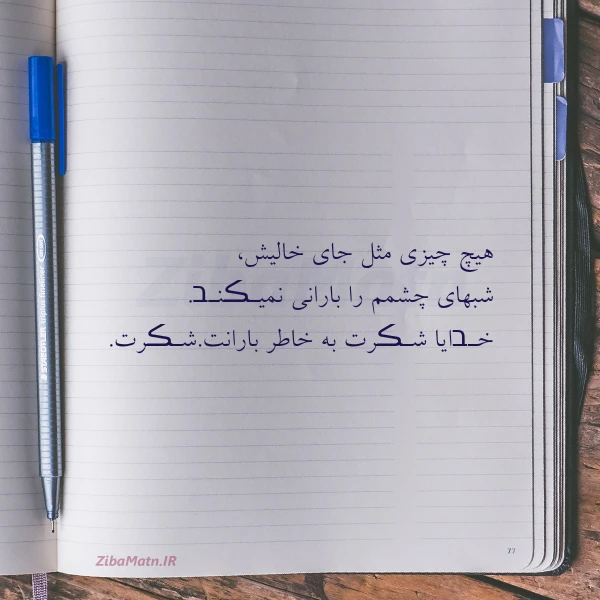 هیچ چیزی مثل جای خالیش،
شبهای چشمم را بارانی نمیـکـنـد.
خـدایا شـکرت به خاطر بارانت.شـکرت.
77
ZibaMatn.IR